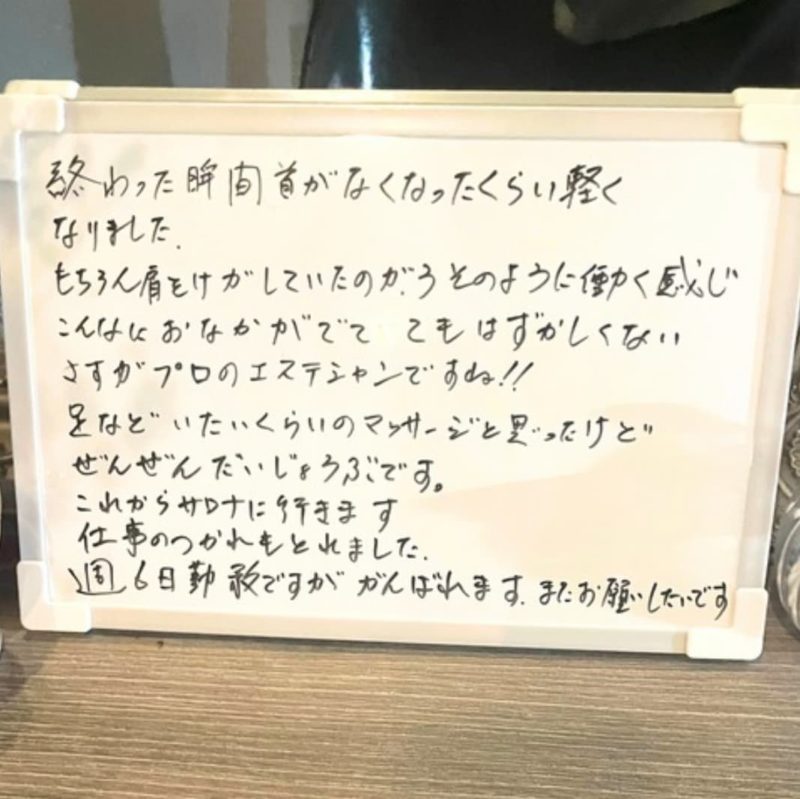 終わった瞬間首がなくなったくらい軽く
なりました.
もちろん肩をけがしていたのが、うそのように働く感じ
こんなに おなかがでて ても はずかしくない
さすがプロのエステシャンですね!!
足など いたいくらいのマッサージと思ったけど
ぜんぜん だいじょうぶです。
これからサロナに行きます
仕事のつかれもとれました.
週6日勤 ですが がんばれます. またお願いしたいです